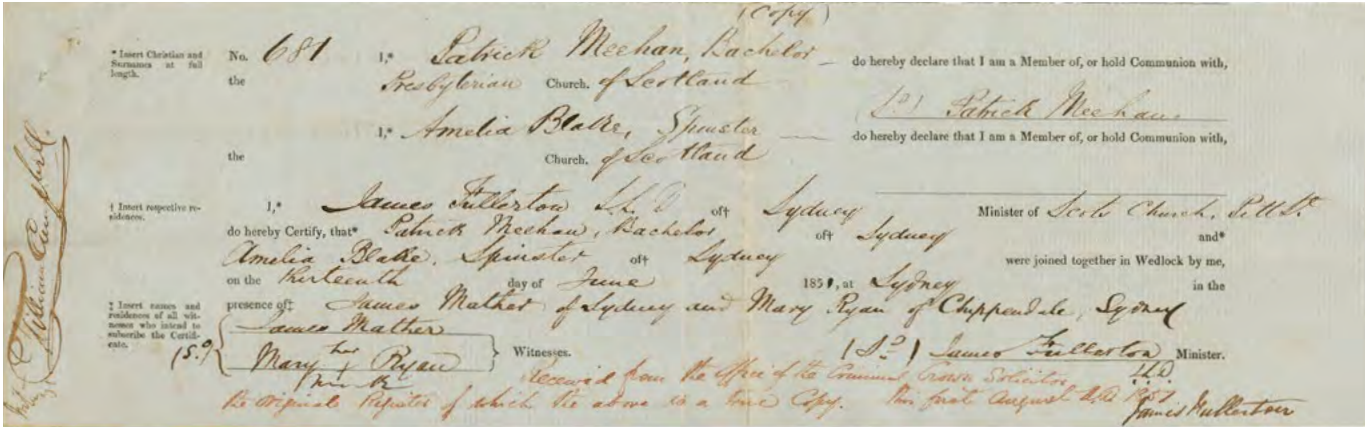 (Copy)
* Insert Christian and Surnames at full length.
No. 681 I,* Patrick Meehan, Bachelor do hereby declare that I am a Member of, or hold Communion with,
the Presbyterian Church. of Scotland
(Sd) Patrick Meehan
I,* Amelia Blake, Spinster do hereby declare that I am a Member of, or hold Communion with,
the Church. of Scotland
† Insert respective residences.
I,* James Fullerton LL.D of† Sydney Minister of Scots Church, Pitt St.
do hereby Certify, that* Patrick Meehan, Bachelor of† Sydney and*
Amelia Blake, Spinster of† Sydney were joined together in Wedlock by me,
on the thirteenth day of June 1851, at Sydney in the
‡ Insert names and residences of all witnesses who intend to subscribe the Certificate.
presence of‡ James Mather of Sydney and Mary Ryan of Chippendale, Sydney
(Sd) James Mather
Mary her x mark Ryan
Witnesses.
(Sd) James Fullerton LL.D Minister.
Received from the Office of the Criminal Crown Solicitor
the original Register of which the above is a true Copy. This first August A.D. 1851
James Fullerton
William Campbell